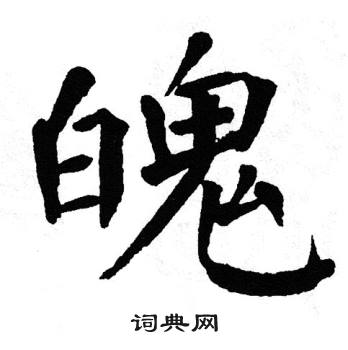 魄
词典网